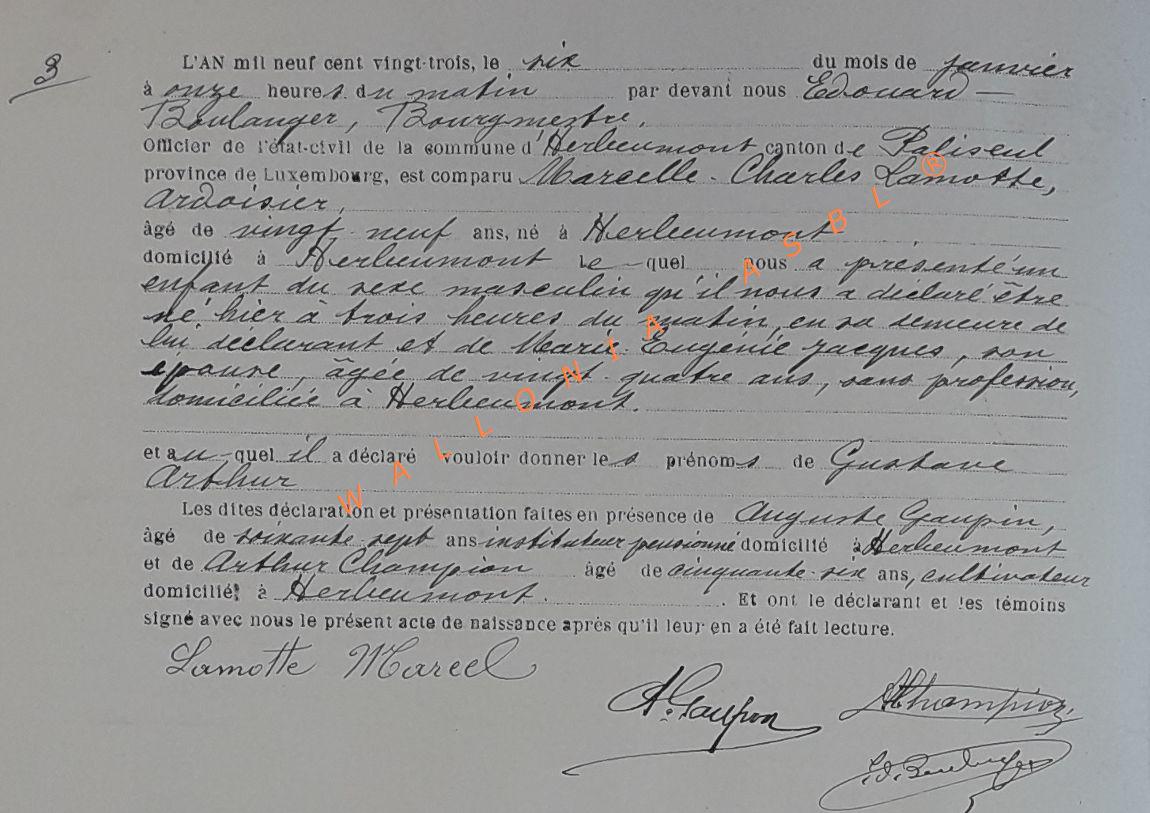 3
L'AN mil neuf cent vingt-trois, le six du mois de janvier
à onze heures du matin par devant nous Edouard —
Boulanger, Bourgmestre,
Officier de l'état-civil de la commune d'Herbeumont canton de Paliseul
province de Luxembourg, est comparu Marcelle-Charles Lamotte,
Ardoisier,
âgé de vingt neuf ans, né à Herbeumont
domicilié à Herbeumont le-quel nous a présenté un
enfant du sexe masculin qu'il nous a déclaré être
né hier à trois heures du matin, en sa demeure de
lui déclarant et de Marie-Eugénie Jacques, son
épouse, âgée de vingt-quatre ans, sans profession,
domiciliée à Herbeumont.
et au-quel il a déclaré vouloir donner les prénoms de Gustave
Arthur
Les dites déclaration et présentation faites en présence de Auguste Gaupin,
âgé de soixante sept ans instituteur pensionné domicilié à Herbeumont
et de Arthur Champion âgé de cinquante-six ans, cultivateur
domicilié à Herbeumont. Et ont le déclarant et les témoins
signé avec nous le présent acte de naissance après qu'il leur en a été fait lecture.
Lamotte Marcel
A. Gaupin
AChampion
Ed. Boulanger
WALLONIA ASBL ®